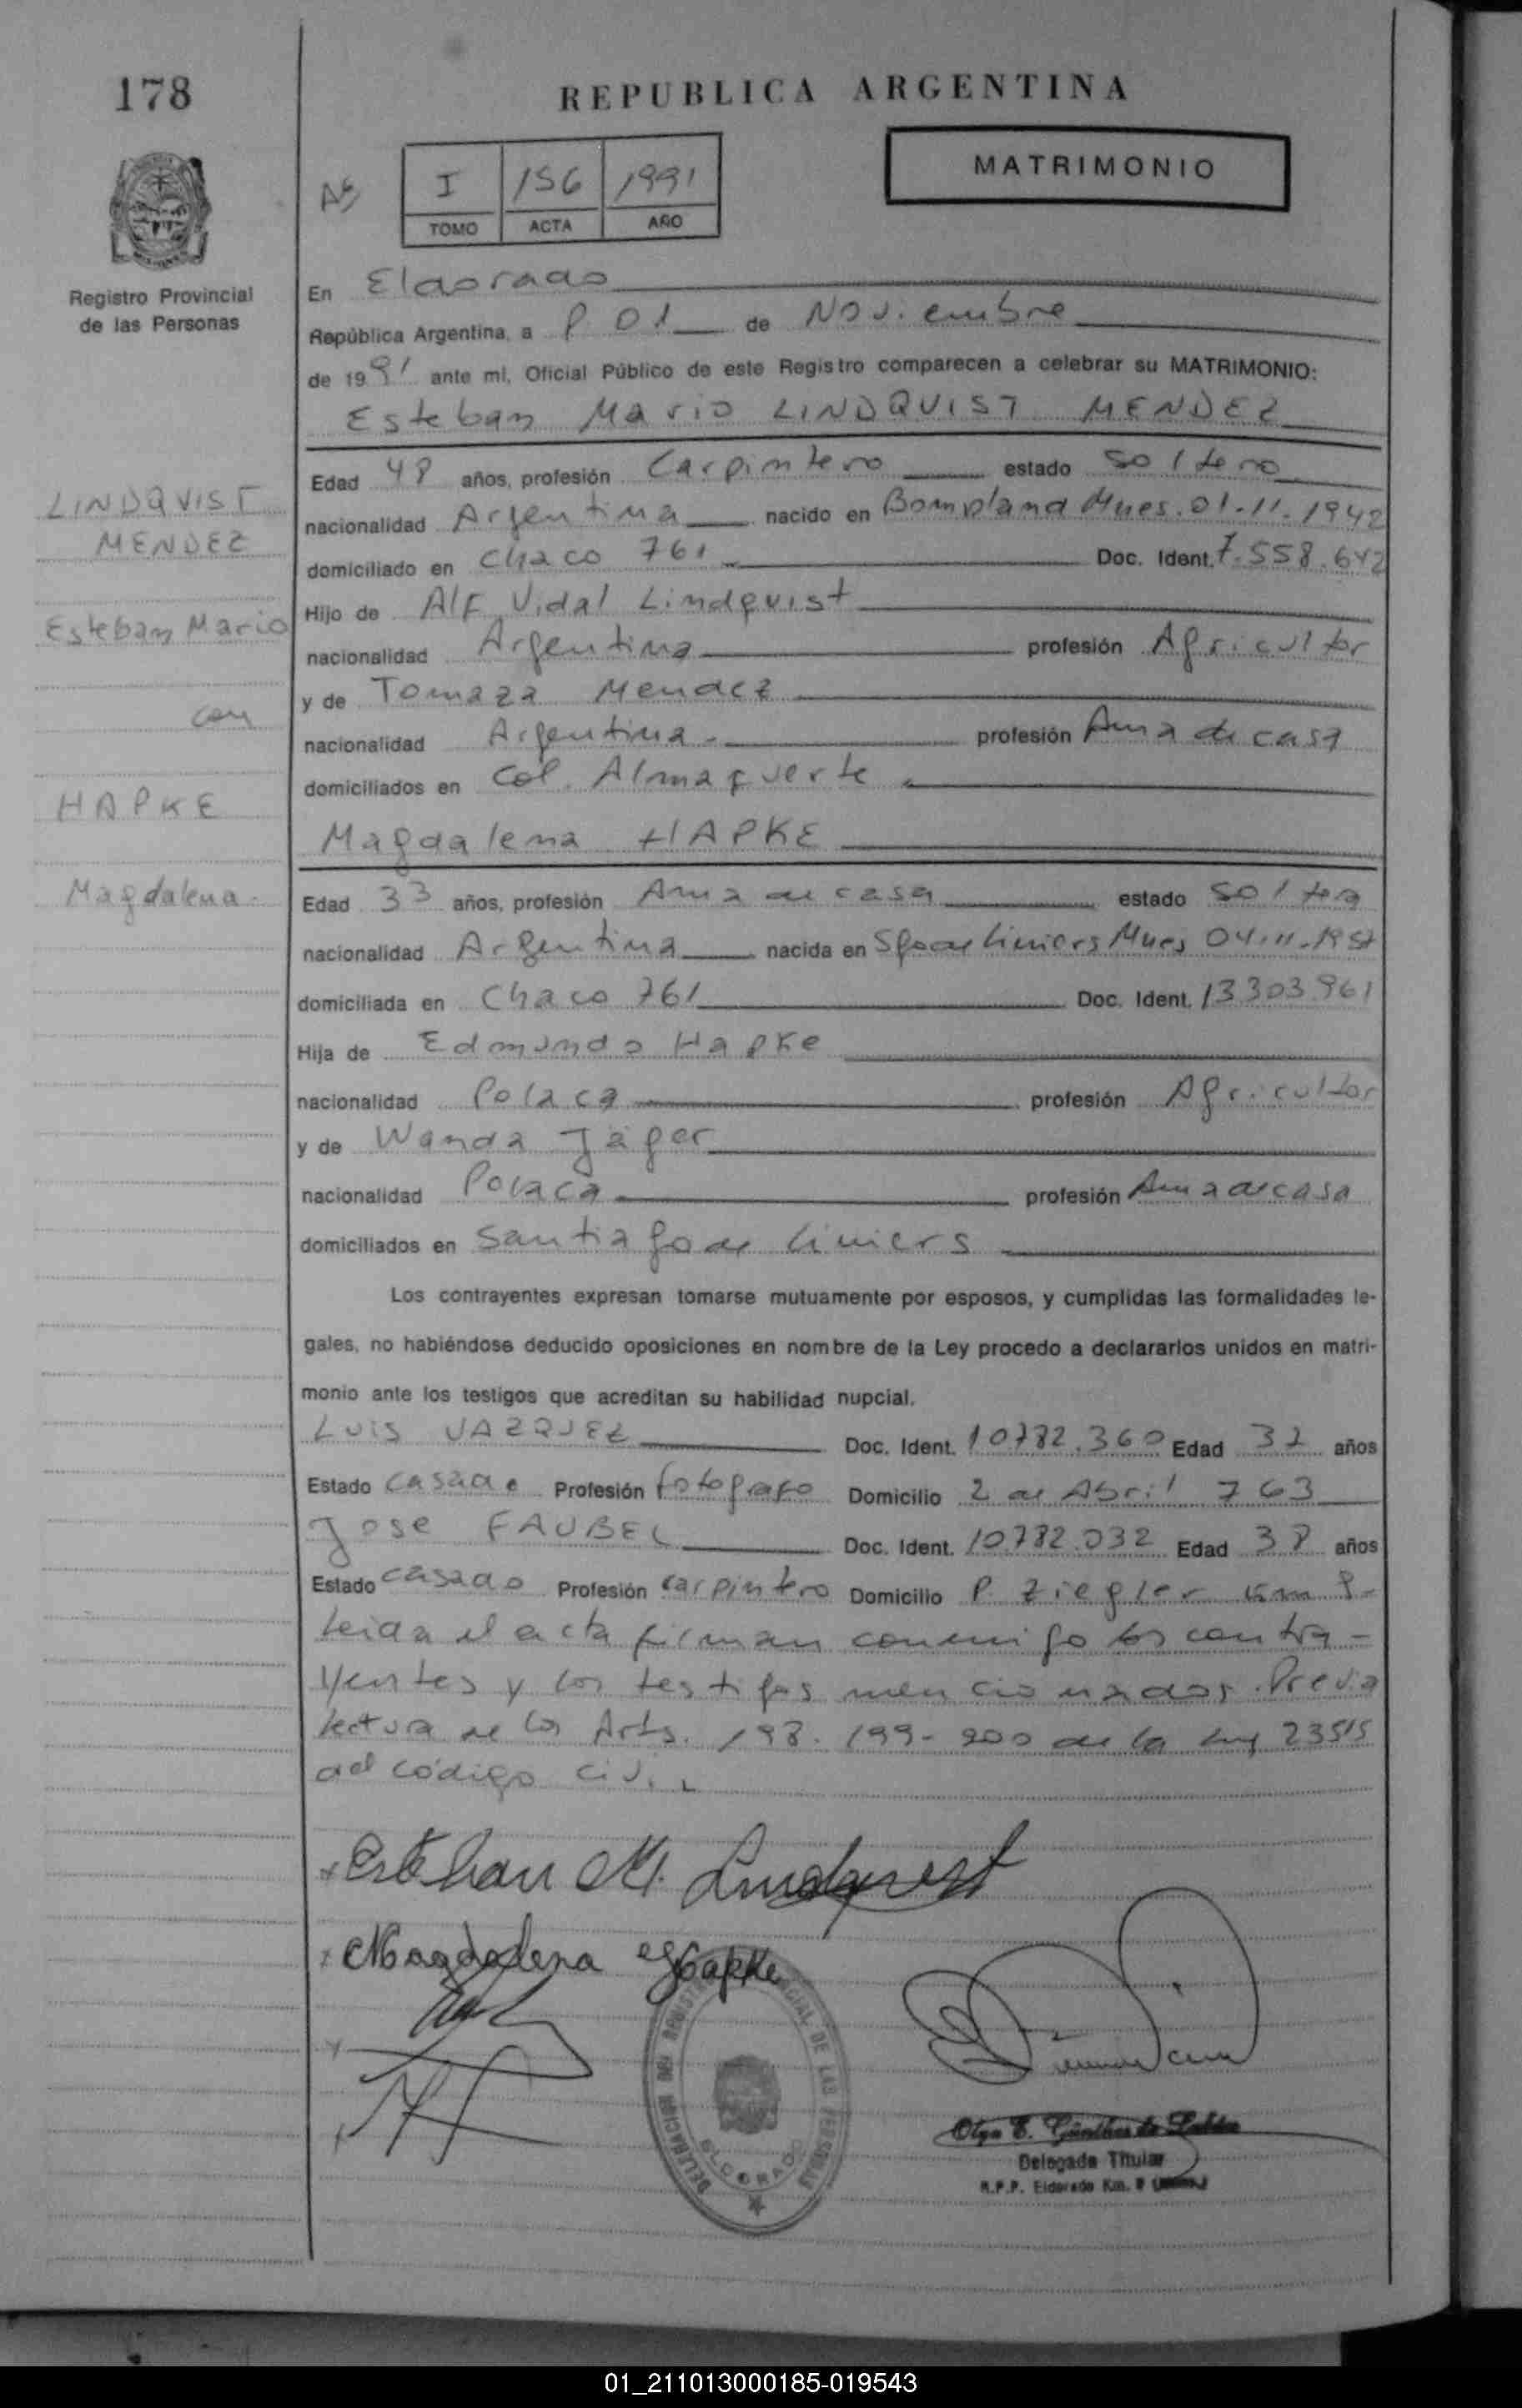 178
REPUBLICA ARGENTINA
MATRIMONIO
I 156 1991
TOMO ACTA AÑO
Registro Provincial
de las Personas
En Eldorado
República Argentina, a P 01 de Noviembre
de 1991 ante mí, Oficial Público de este Registro comparecen a celebrar su MATRIMONIO:
Esteban Mario LINDQVIST MENDEZ
Edad 48 años, profesión Carpintero estado soltero
LINDQVIST
nacionalidad Argentina nacido en Bompland Mnes. 01.11.1942
MENDEZ
domiciliado en Chaco 761 Doc. Ident. 7.558.642
Hijo de Alf Vidal Lindqvist
Esteban Mario
nacionalidad Argentina profesión Agricultor
y de Tomaza Mendez
con
nacionalidad Argentina profesión Ama de casa
domiciliados en Col. Almafuerte
HAPKE
Magdalena HAPKE
Magdalena
Edad 33 años, profesión Ama de casa estado soltera
nacionalidad Argentina nacida en Sgo de Liniers Mnes 04.11.1957
domiciliada en Chaco 761 Doc. Ident. 13303961
Hija de Edmundo Hapke
nacionalidad Polaca profesión Agricultor
y de Wanda Jäger
nacionalidad Polaca profesión Ama de casa
domiciliados en Santiago de Liniers
Los contrayentes expresan tomarse mutuamente por esposos, y cumplidas las formalidades le-
gales, no habiéndose deducido oposiciones en nombre de la Ley procedo a declararlos unidos en matri-
monio ante los testigos que acreditan su habilidad nupcial.
LUIS VAZQUEZ Doc. Ident. 10782.360 Edad 37 años
Estado casado Profesión fotografo Domicilio 2 de Abril 763
Jose FAUBEL Doc. Ident. 10.782.032 Edad 38 años
Estado casado Profesión carpintero Domicilio P. Ziegler km 9-
Leida el acta firman conmigo los contra-
yentes y los testigos mencionados. Previa
lectura de los Arts. 198. 199- 200 de la Ley 23515
del código civil
Esteban M. Lindqvist
Magdalena Hapke
DELEGACION DEL REGISTRO PROVINCIAL DE LAS PERSONAS
ELDORADO
Olga E. Günther de
Delegada Titular
R.P.P. Eldorado Km. 9
01_211013000185-019543